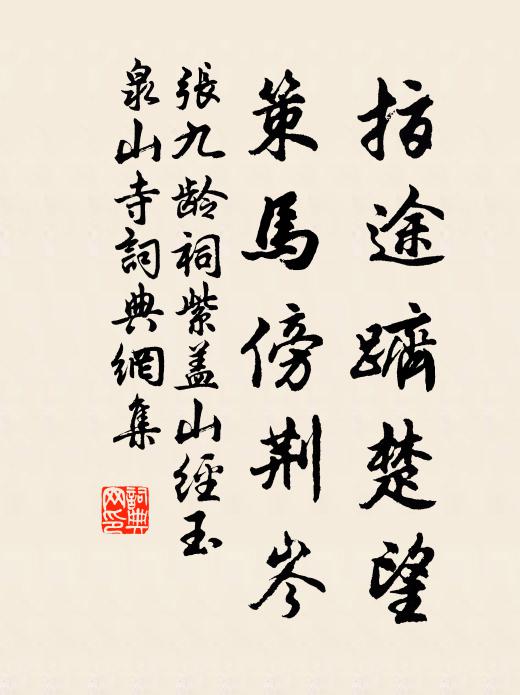 指途躋楚望
策馬傍荆岑
張九齡祠紫蓋山經玉
泉山寺詞典網集
詞典
网印